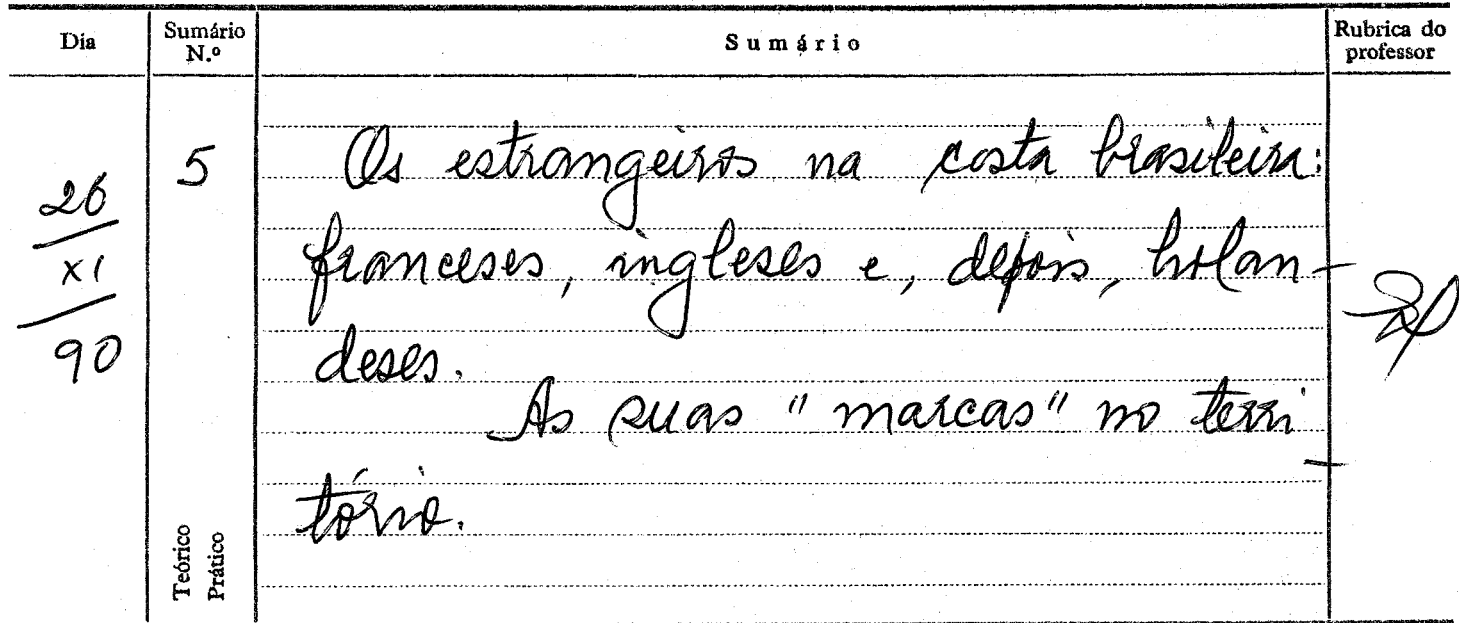 Dia
Sumário N.º
Sumário
Rubrica do professor
26
XI
90
5
Os estrangeiros na costa brasileira:
franceses, ingleses e, depois, holan-
deses.
As suas "marcas" no terri-
tório.
Teórico
Prático